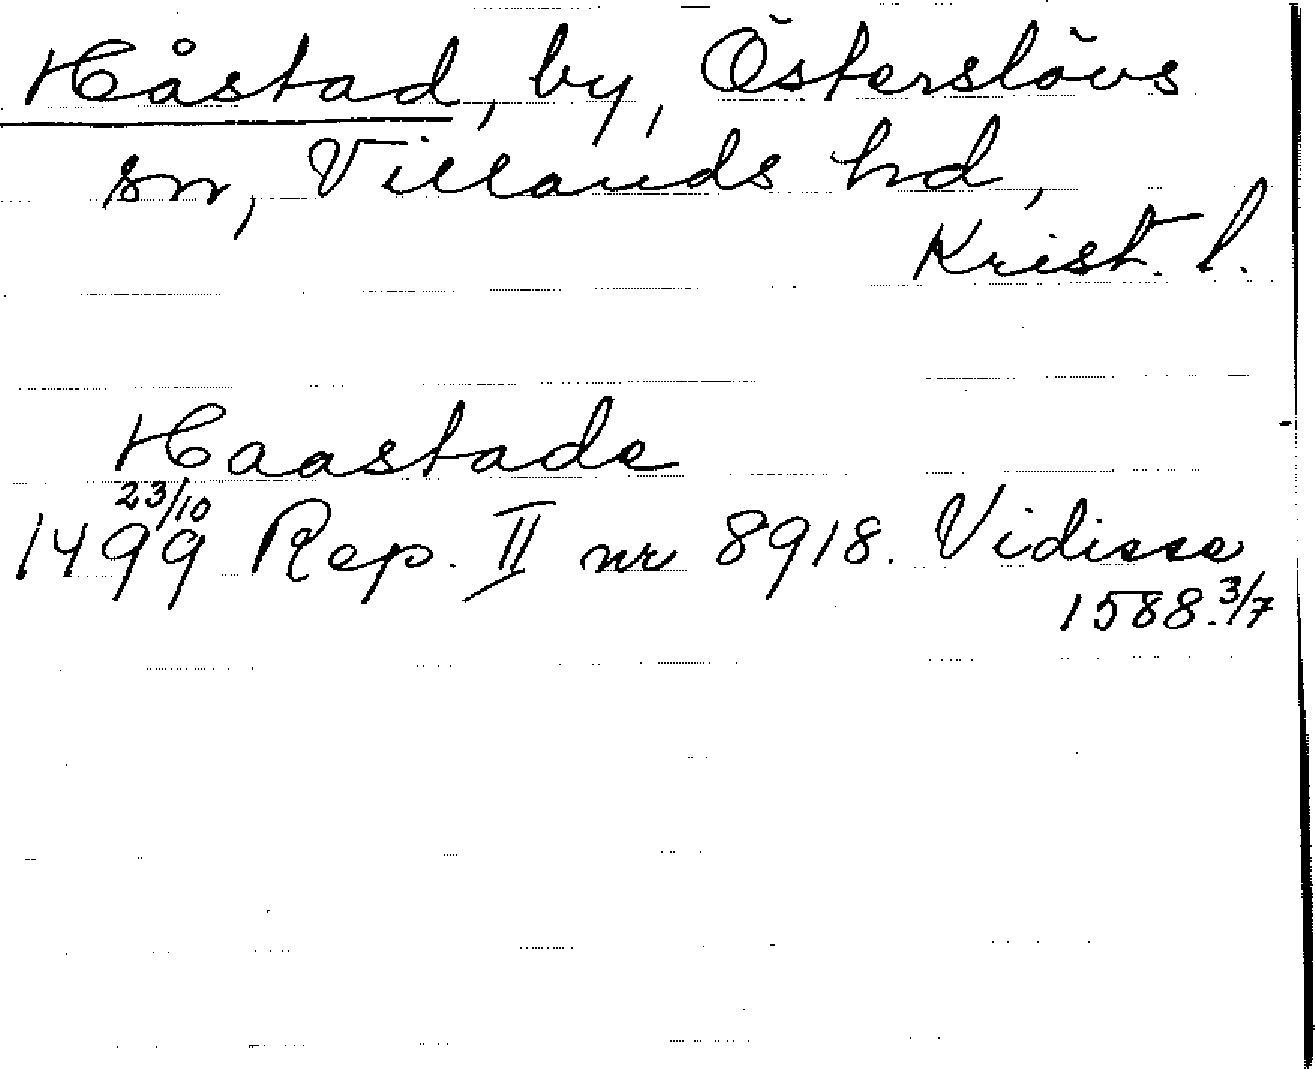 Håstad, by, Österslövs
sn, Villands hd,
Krist. l.
Haastade
23/10
1499 Rep. II nr 8918. Vidisse
1588. 3/7